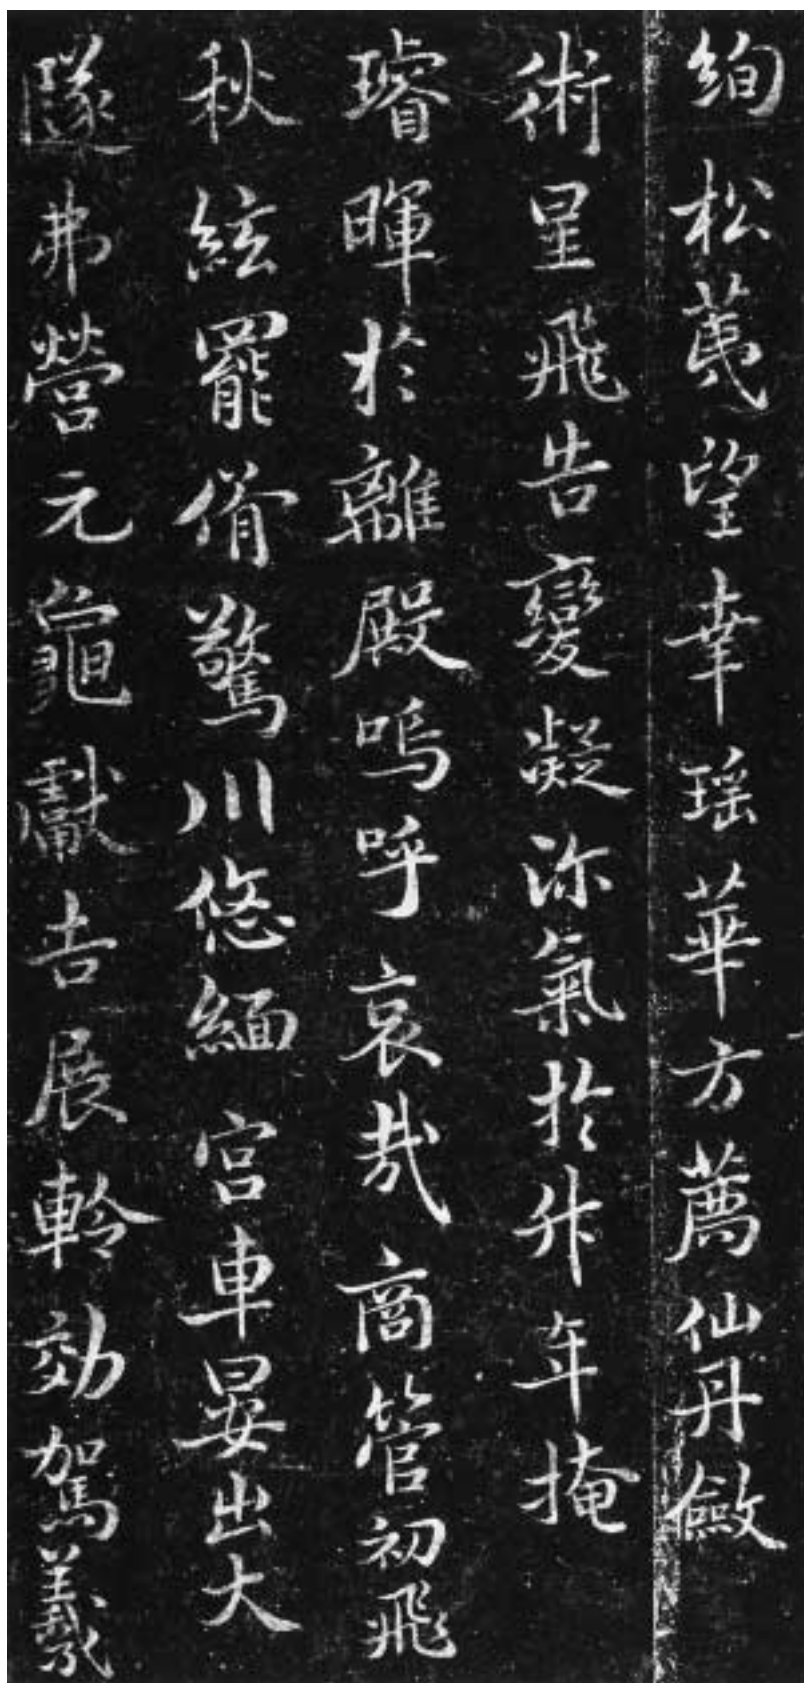 絢松茰望幸瑶華方薦仙丹斂
術星飛告變凝沴氣於升年掩
璿暉於離殿嗚呼哀哉商管初飛
秋絃罷脩驚川悠緬宮車晏出大
隧弗營元龜獻吉展軨効駕羲